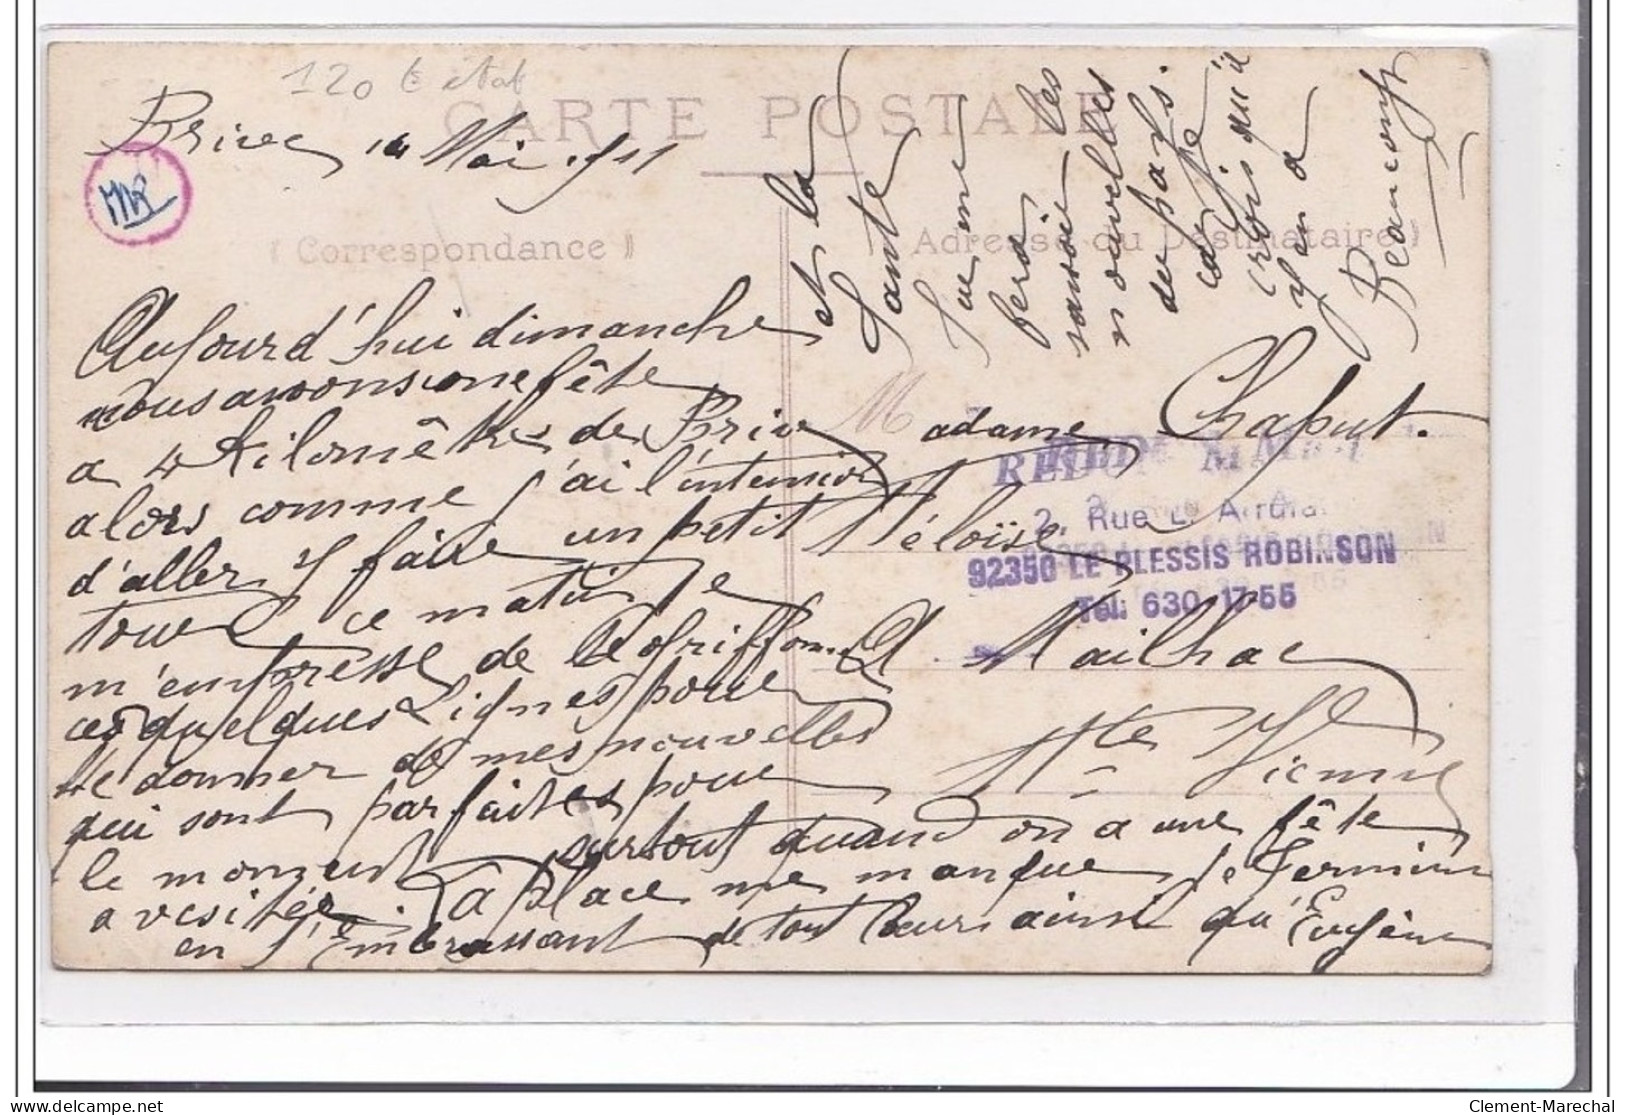 120 € état
CARTE POSTALE
Brive Mai 1911
MR
Correspondance
Adresse du Destinataire
Aujourd'hui dimanche
nous avons une fête
a 4 Kilomêtres de Brive
alors comme j'ai l'intension
d'aller y faire un petit
tour ce matin je
m'empresse de te griffonner
ces quelques lignes pour
te donner de mes nouvelles
qui sont parfaites pour
le moment surtout quand on a une fête
a visiter. La place me manque je termine
en t'Embrassant de tout Cœur ainsi qu'Eugène
et la
Santé
que me
fera
savoir les
nouvelles
du pays.
car je
crois qu'il
y en a
Beaucoup
Madame Chaput.
Héloïse
A Mailhac
Hte Vienne
2, Rue L.
92350 LE PLESSIS ROBINSON
Tél: 630-17-55
Clement-Marechal